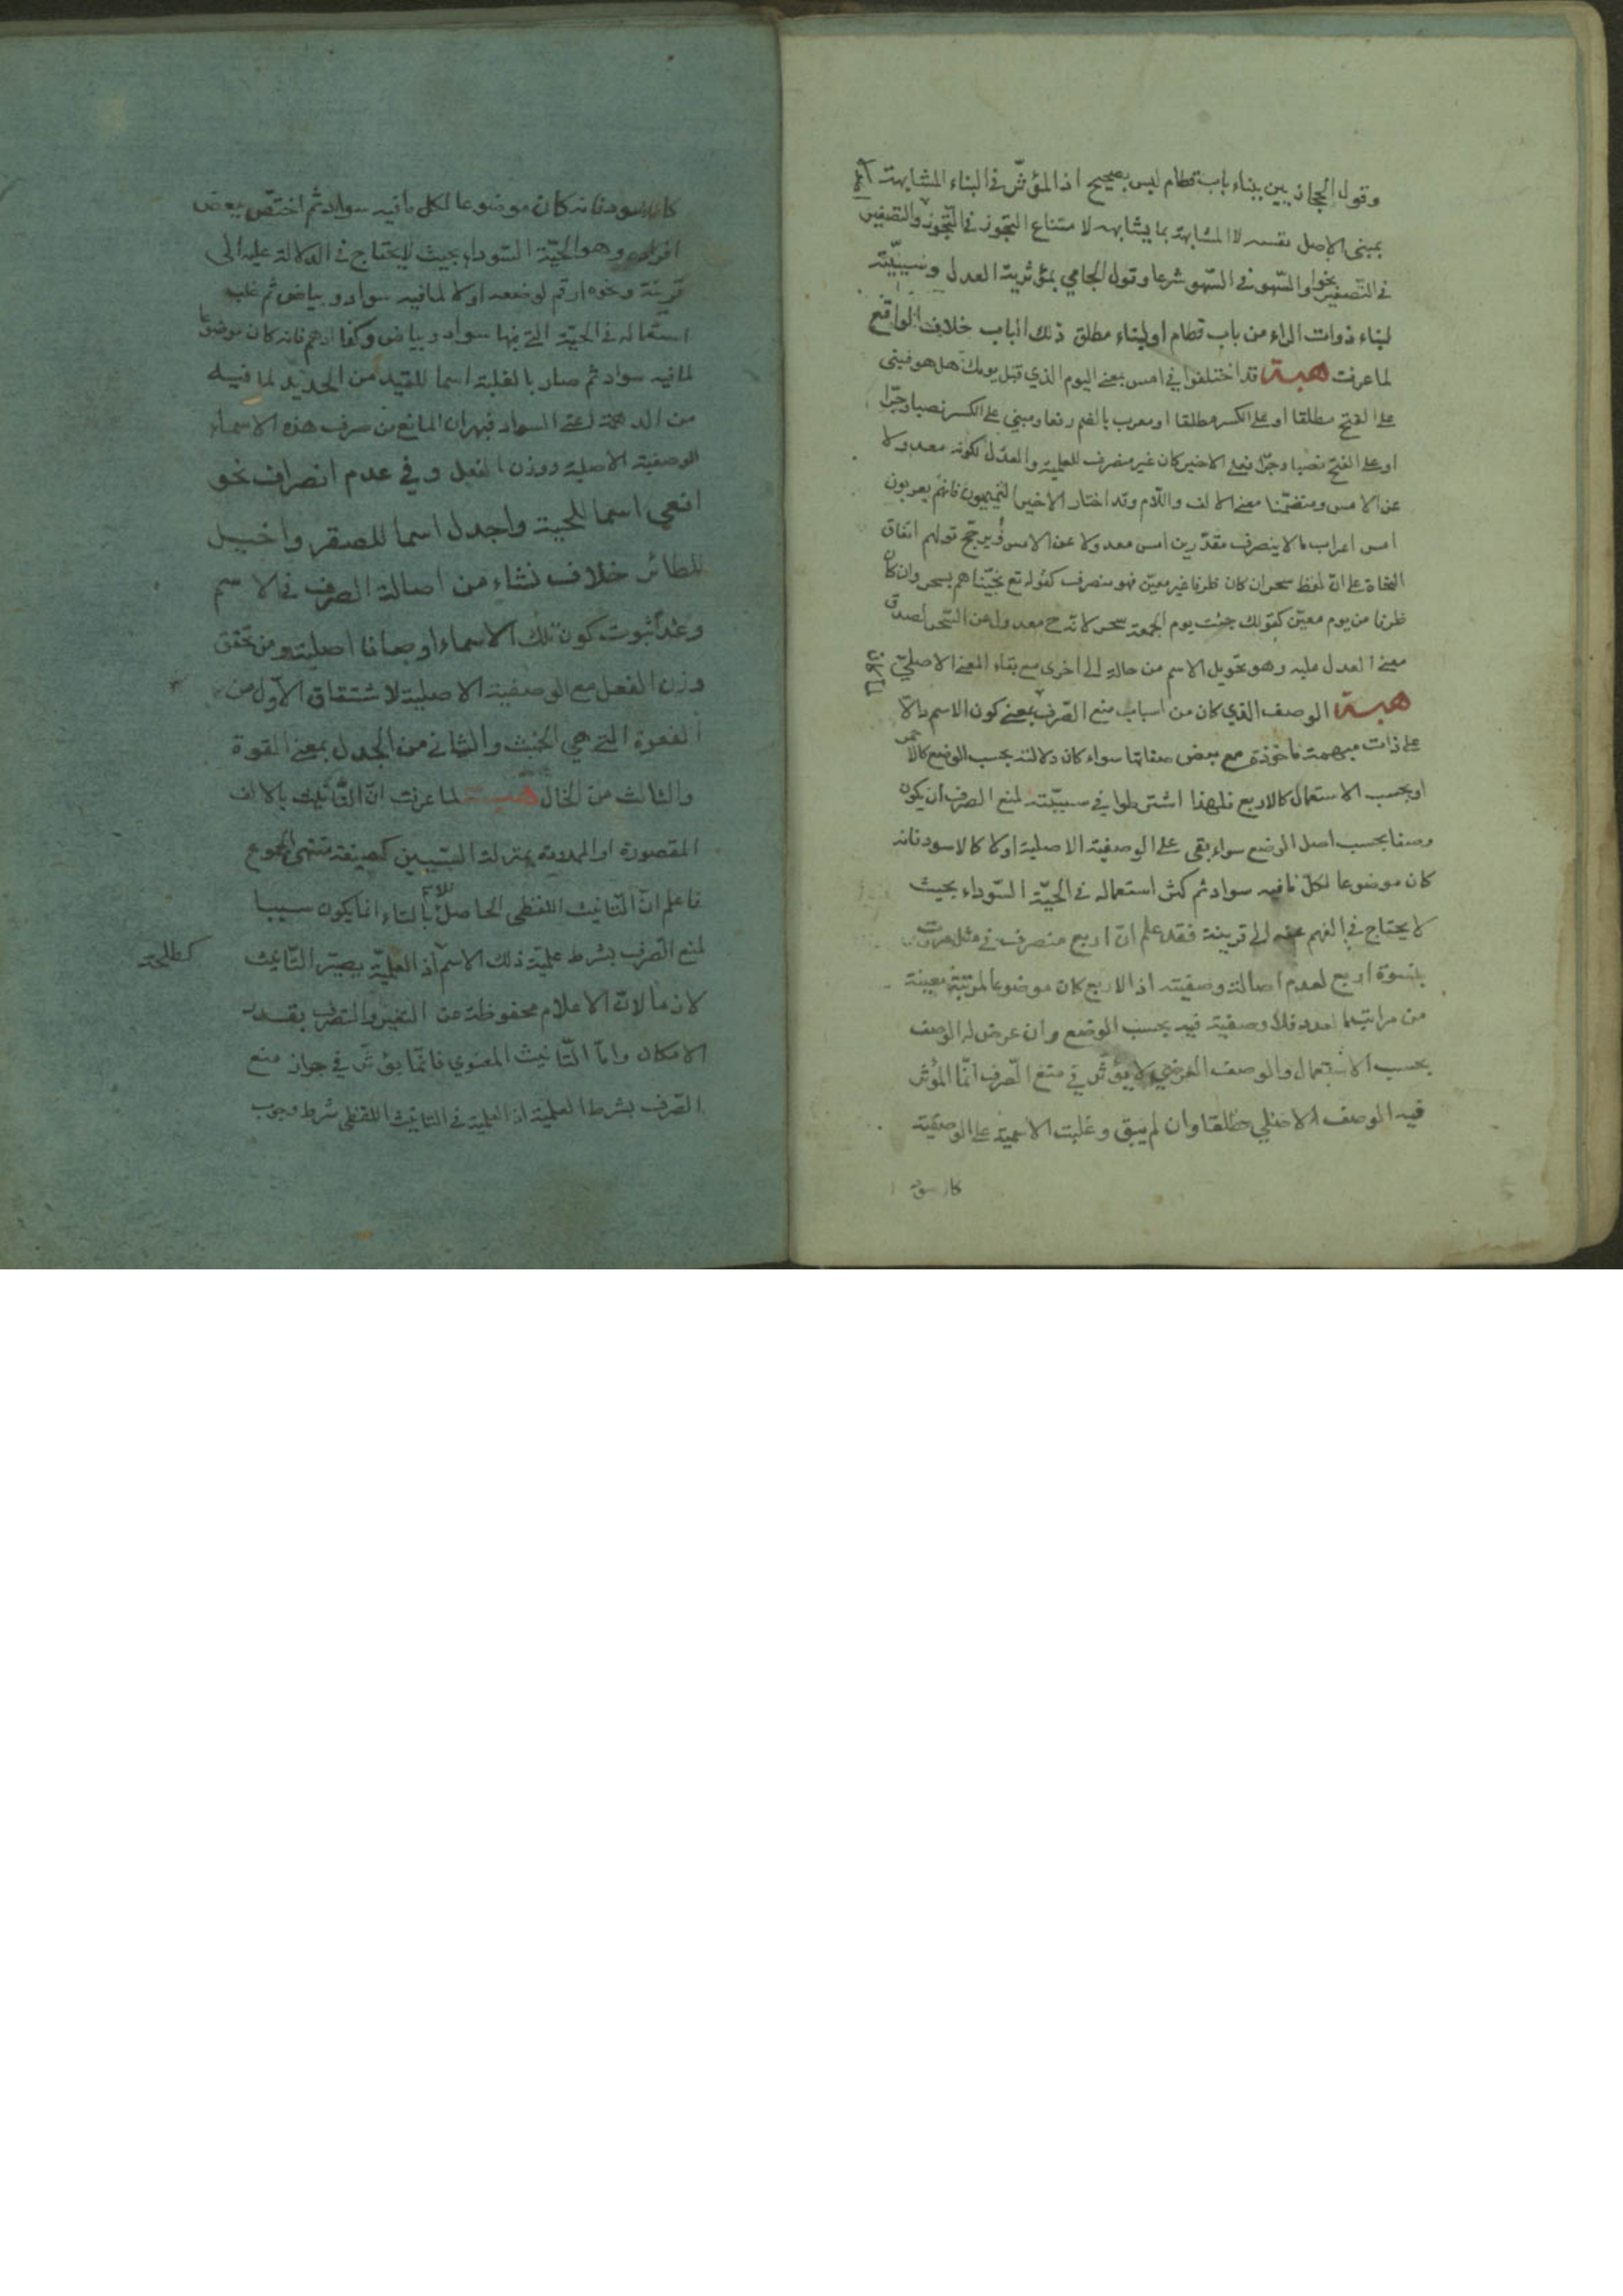 وقول الحجازيين ببناء باب قطام ليس بصحيح اذ المؤثّر في البناء المشابهة
بمبنى الاصل نفسه لا المشابهة بما يشابهه لامتناع التجوز في التّجوز والتصغير
في التّصغير نحوا والسّهو في السّهو شرعا وقول الجامي بمؤثرية العدل وسببيّته
لبناء ذوات الراء من باب قطام او لبناء مطلق ذلك الباب خلاف الواقع
لما عرفت هبة قد اختلفوا في امس بمعنى اليوم الذي قبل يومك هل هو مبنى
على الفتح مطلقا او على الكسر مطلقا او معرب بالضم رفعا ومبني على الكسر نصبا وجرّا
او على الفتح نصبا وجرّا فعلى الاخير كان غير منصرف للعلمية والعدل لكونه معدولا
عن الامس ومتضمّنا معنى الالف واللّام وقد اختار الاخير التميميون فانهم يعربون
امس اعراب ما لا ينصرف مقدّرين امس معدولا عن الامس ويرجّح قولهم اتفاق
النحاة على انّ لفظ سحر ان كان ظرفا غير معيّن فهو منصرف كقوله تع نجّيناهم بسحر وان كان
ظرفا من يوم معيّن كقولك جئت يوم الجمعة سحر لانه ح معدول عن السّحر لصدق
معنى العدل عليه وهو تحويل الاسم من حالة الى اخرى مع بقاء المعنى الاصليّ
هبة الوصف الذي كان من اسباب منع الصّرف بمعنى كون الاسم دالّا
على ذات مبهمة مأخوذة مع بعض صفاتها سواء كان دلالته بحسب الوضع كالاحمر
او بحسب الاستعمال كالاربع فلهذا اشترطوا في سببيّته لمنع الصرف ان يكون
وصفا بحسب اصل الوضع سواء بقى على الوصفية الاصلية اولا كالاسود فانه
كان موضوعا لكلّ ما فيه سواد ثم كثر استعماله في الحيّة السّوداء بحيث
لا يحتاج في الفهم عنه الى قرينة فقد علم انّ اربع منصرف في مثل مررت
بنسوة اربع لعدم اصالة وصفيته اذ الاربع كان موضوعا لمرتبة معينة
من مراتب العدد فلا وصفية فيه بحسب الوضع وان عرض له الوصف
بحسب الاستعمال والوصف العرضي لا يؤثر في منع الصّرف انّما المؤثر
فيه الوصف الاصلي مطلقا وان لم يبق وغلبت الاسمية على الوصفيّة
كاسود
كاسود فانه كان موضوعا لكل ما فيه سواد ثم اختصّ ببعض
افراده وهو الحيّة السّوداء بحيث لا يحتاج في الدلالة عليه الى
قرينة ونحوه ارقم لوضعه اولا لما فيه سواد وبياض ثم غلب
استعماله في الحيّة التي فيها سواد وبياض وكذا ادهم فانه كان موضوعا
لما فيه سواد ثم صار بالغلبة اسما للقيد من الحديد لما فيه
من الدهمة اعني السواد فبهر ان المانع من صرف هذه الاسماء
الوصفية الاصلية ووزن الفعل وفي عدم انصراف نحو
افعى اسما للحية واجدل اسما للصقر واخيل
للطائر خلاف نشاء من اصالة الصرف في الاسم
وعدم ثبوت كون تلك الاسماء اوصافا اصلية ومن تحقق
وزن الفعل مع الوصفية الاصلية لاشتقاق الاوّل من
الفعوة التي هي الخبث والثاني من الجدل بمعنى القوة
والثالث من الخال هبة لما عرفت انّ التّأنيث بالالف
المقصورة او الممدودة بمنزلة السّببين كصيغة منتهى الجموع
فاعلم انّ التّانيث اللفظى الحاصل بالتاء انما يكون سببا
لمنع الصّرف بشرط علميّة ذلك الاسم اذ العلميّة يصيّر التّانيث كطلحة
لازما لانّ الاعلام محفوظة عن التغير والتصرّف بقدر
الامكان وامّا التّانيث المعنوي فانّما يؤثّر في جواز منع
الصّرف بشرط العلمية اذ العلمية في التانيث اللفظى شرط وجوب